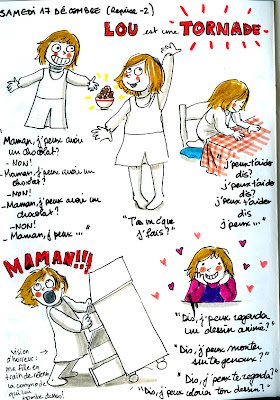 SAMEDI 17 DÉCEMBRE (Reprise -2)
LOU est une TORNADE
Maman, j'peux avoir
un chocolat?
- NON!
- Maman, j'peux avoir un
chocolat?
- NON!
- Maman, j'peux avoir
un chocolat?
- NON!
- Maman, j'peux ..."
"T'as vu c'que
j'fais?"
j'peux t'aider
dis?
j'peux t'aider
dis?
j'peux t'aider
dis
j'peux ..."
MAMAN!!!
Vision
d'horreur:
ma fille en
train de retenir
la commode
qui lui
tombe dessus!
"Dis, j'peux regarder
un dessin animé?"
"Dis, j'peux monter
sur tes genoux?"
"Dis, j'peux te regarder?"
"Dis, j'peux colorier ton dessin?"